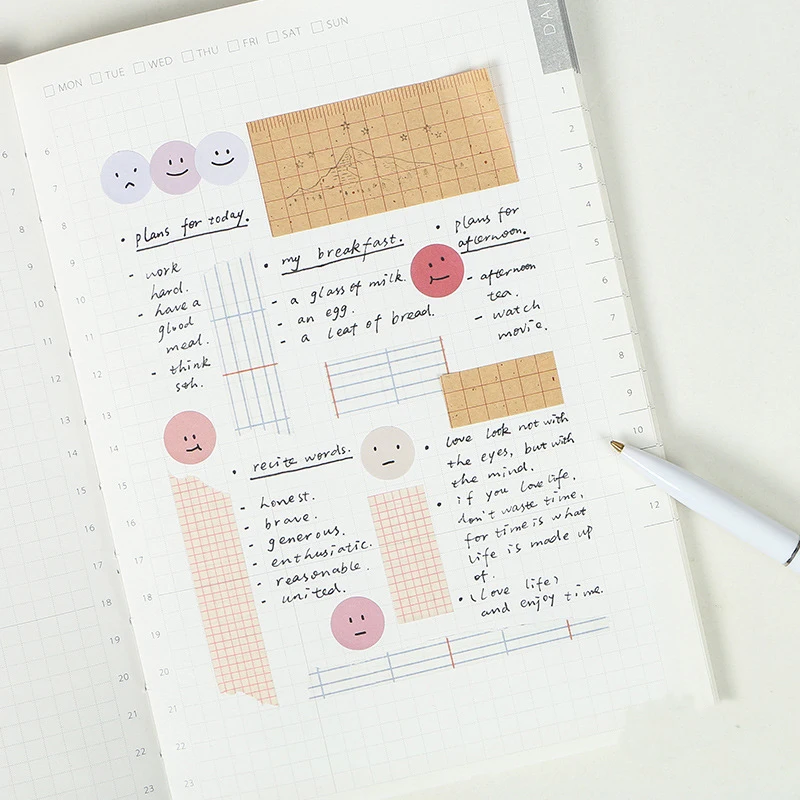 MON TUE WED THU FRI SAT SUN
DAI
• plans for today.
- work
hard.
- have a
glood
meal.
- think
sth.
• my breakfast.
- a glass of milk.
- an egg.
- a leaf of bread.
• plans for
afternoon.
- afternoon
tea.
- watch
movie.
• recite words.
- honest.
- brave.
- generous.
- enthusiatic.
- reasonable.
- united.
• love look not with
the eyes, but with
the mind.
• if you love life.
don't waste time,
for time is what
life is made up
of.
• (Love life)
and enjoy time.
6
7
8
9
10
11
12
13
14
15
16
17
18
19
20
21
22
23
1
2
3
4
5
6
7
8
9
10
12